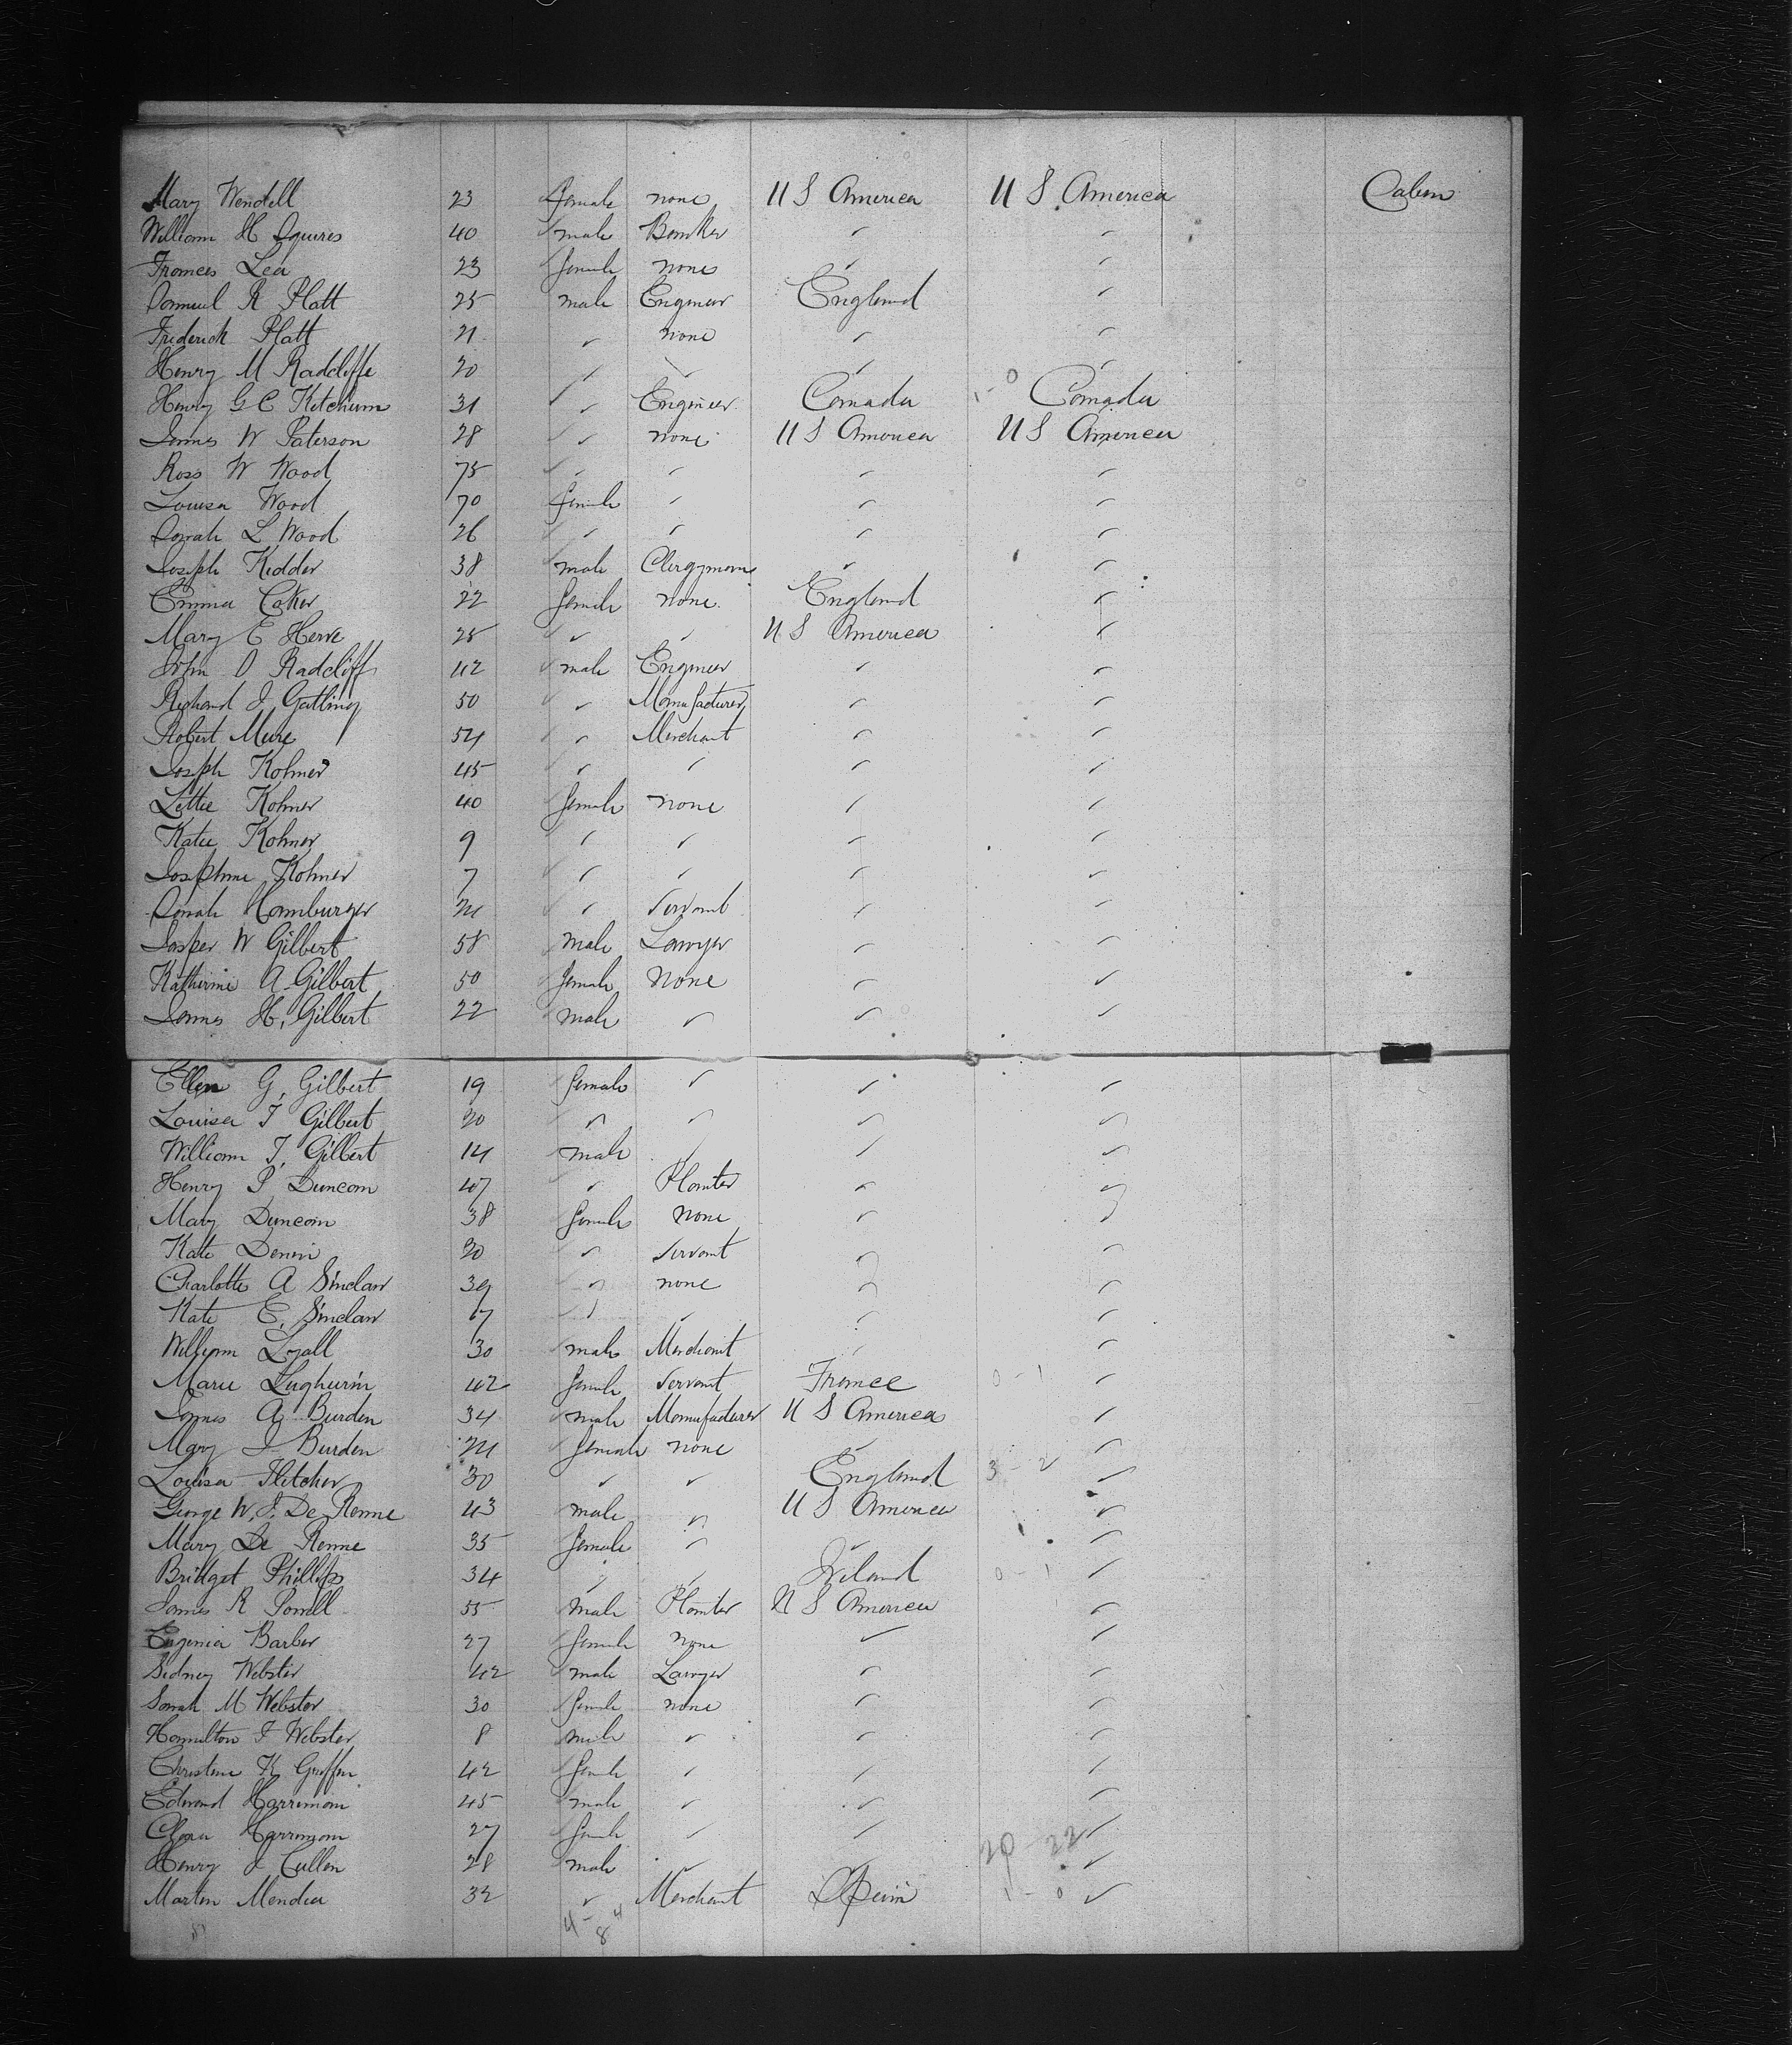 Mary Wendell 23 female none U S America U S America Cabin
William H Squires 40 male Banker " "
Frances Lea 23 female none " "
Samuel R Platt 25 male Engineer England "
Frederick Platt 21 " none " "
Henry M Radcliffe 20 " " " "
Henry G C Ketchum 31 " Engineer Canada 1-0 Canada
James W Paterson 28 " none U S America U S America
Ross W Wood 75 " " " "
Louisa Wood 70 female " " "
Sarah L Wood 26 " " " "
Joseph Kidder 38 male Clergyman " "
Emma Coker 22 female none England "
Mary E Herve 25 " " U S America "
John D Radcliff 42 male Engineer " "
Richard J Gatling 50 " Manufacturer " "
Robert Mure 54 " Merchant " "
Joseph Kohner 45 " " " "
Lettie Kohner 40 female none " "
Katie Kohner 9 " " " "
Josephine Kohner 7 " " " "
Sarah Hamburger 24 " Servant " "
Jasper W Gilbert 58 male Lawyer " "
Katherine A Gilbert 50 female none " "
James H. Gilbert 22 male " " "
Ellen G. Gilbert 19 female " " "
Louisa T Gilbert 20 " " " "
William T. Gilbert 14 male " " "
Henry P Duncan 47 " Planter " "
Mary Duncan 38 female none " "
Kate 20 " Servant " "
Charlotte A Sinclair 39 " none " "
Kate E. Sinclair 17 " " " "
William Lyall 30 male Merchant " "
Marie 42 female Servant France 0-1 "
James A Burden 34 male Manufacturer U S America "
Mary I Burden 24 female none " "
Louisa Fletcher 30 " " England 3-2 "
George W. J. De Renne 43 male " U S America "
Mary De Renne 35 female " " "
Bridget Phillips 34 " " Ireland 0-1 "
James R Powell 55 male Planter U S America "
Eugenia Barber 27 female none " "
Sidney Webster 42 male Lawyer " "
Sarah M Webster 30 female none " "
Hamilton F Webster 8 male " " "
Christine K Griffin 42 female " " "
Edward Harriman 45 male " " "
Clara Harriman 27 female " " "
Henry J Cullen 28 male " " 20-22 "
Martin Mendia 32 " Merchant Spain 1-0 "